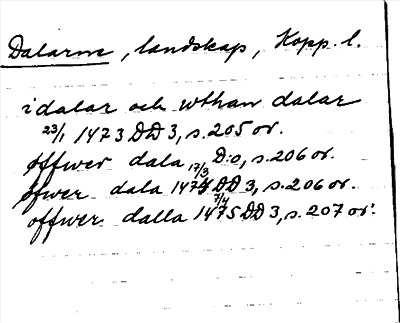 Dalarne, landskap, Kopp. l.
i dalar och wthan dalar
23/1 1473 DD 3, s. 205 or.
öffwer dala 17/3 D:o, s. 206 or.
öfwer dala 1474 DD 3, s. 206 or.
offwer dalla 7/4 1475 DD 3, s. 207 or.